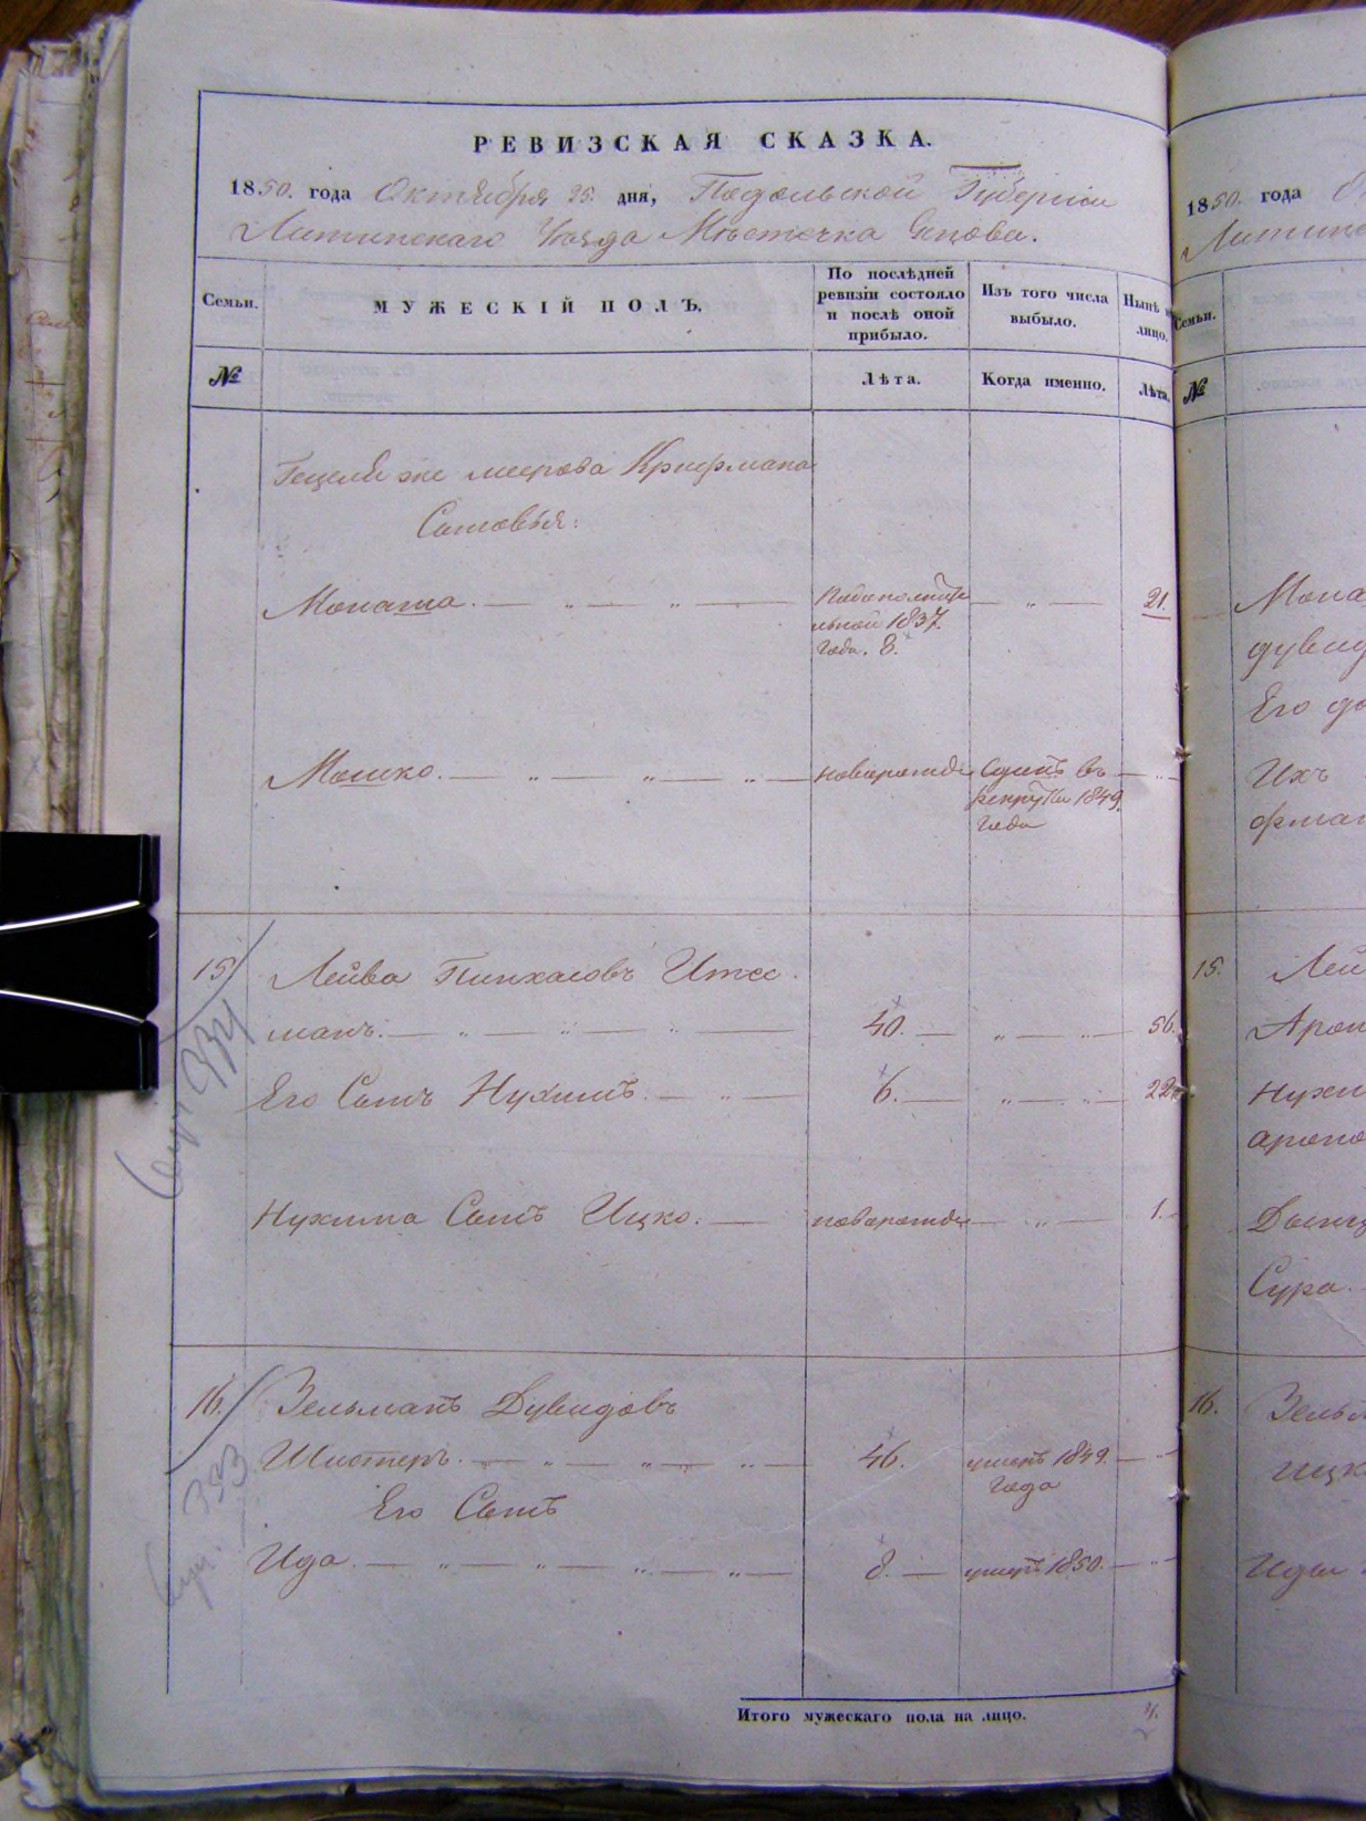 РЕВИЗСКАЯ СКАЗКА.
1850. года Октября 25. дня, Подольской Губернiи
Литинскаго Уѣзда Мѣстечка
Семьи.
МУЖЕСКIЙ ПОЛЪ.
По послѣдней ревизiи состояло и послѣ оной прибыло.
Изъ того числа выбыло.
Нынѣ
лицо.
№
Лѣта.
Когда именно.
Лѣта.
Гецеля же меерова Крифмана
Сыновья:
Монаша. 21.
1837.
года. 8.
Мошко. новорожде Сданъ въ
рекруты 1849.
года
15 Лейва Пинхасовъ
манъ. 40. 56.
Его Сынъ Нухимъ. 6. 22
Нухима Сынъ Ицко. новорожде 1.
16. Зельманъ Дувидовъ
Шистеръ. 46. умеръ 1849.
года
Его Сынъ
Ида. 8. умеръ 1850.
353
Итого мужескаго пола на лицо. 4.
1850. года
Литинс
Семьи.
№
Мона
дувид
Его до
Ихъ
фман
15. Лей
Арон
Нухи
ароно
Сура.
16. Зельм
Ицк
Иды